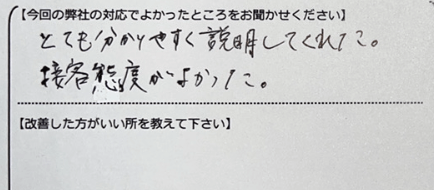 【今回の弊社の対応でよかったところをお聞かせください】
とても分かりやすく説明してくれた。
接客態度がよかった。
【改善した方がいい所を教えて下さい】